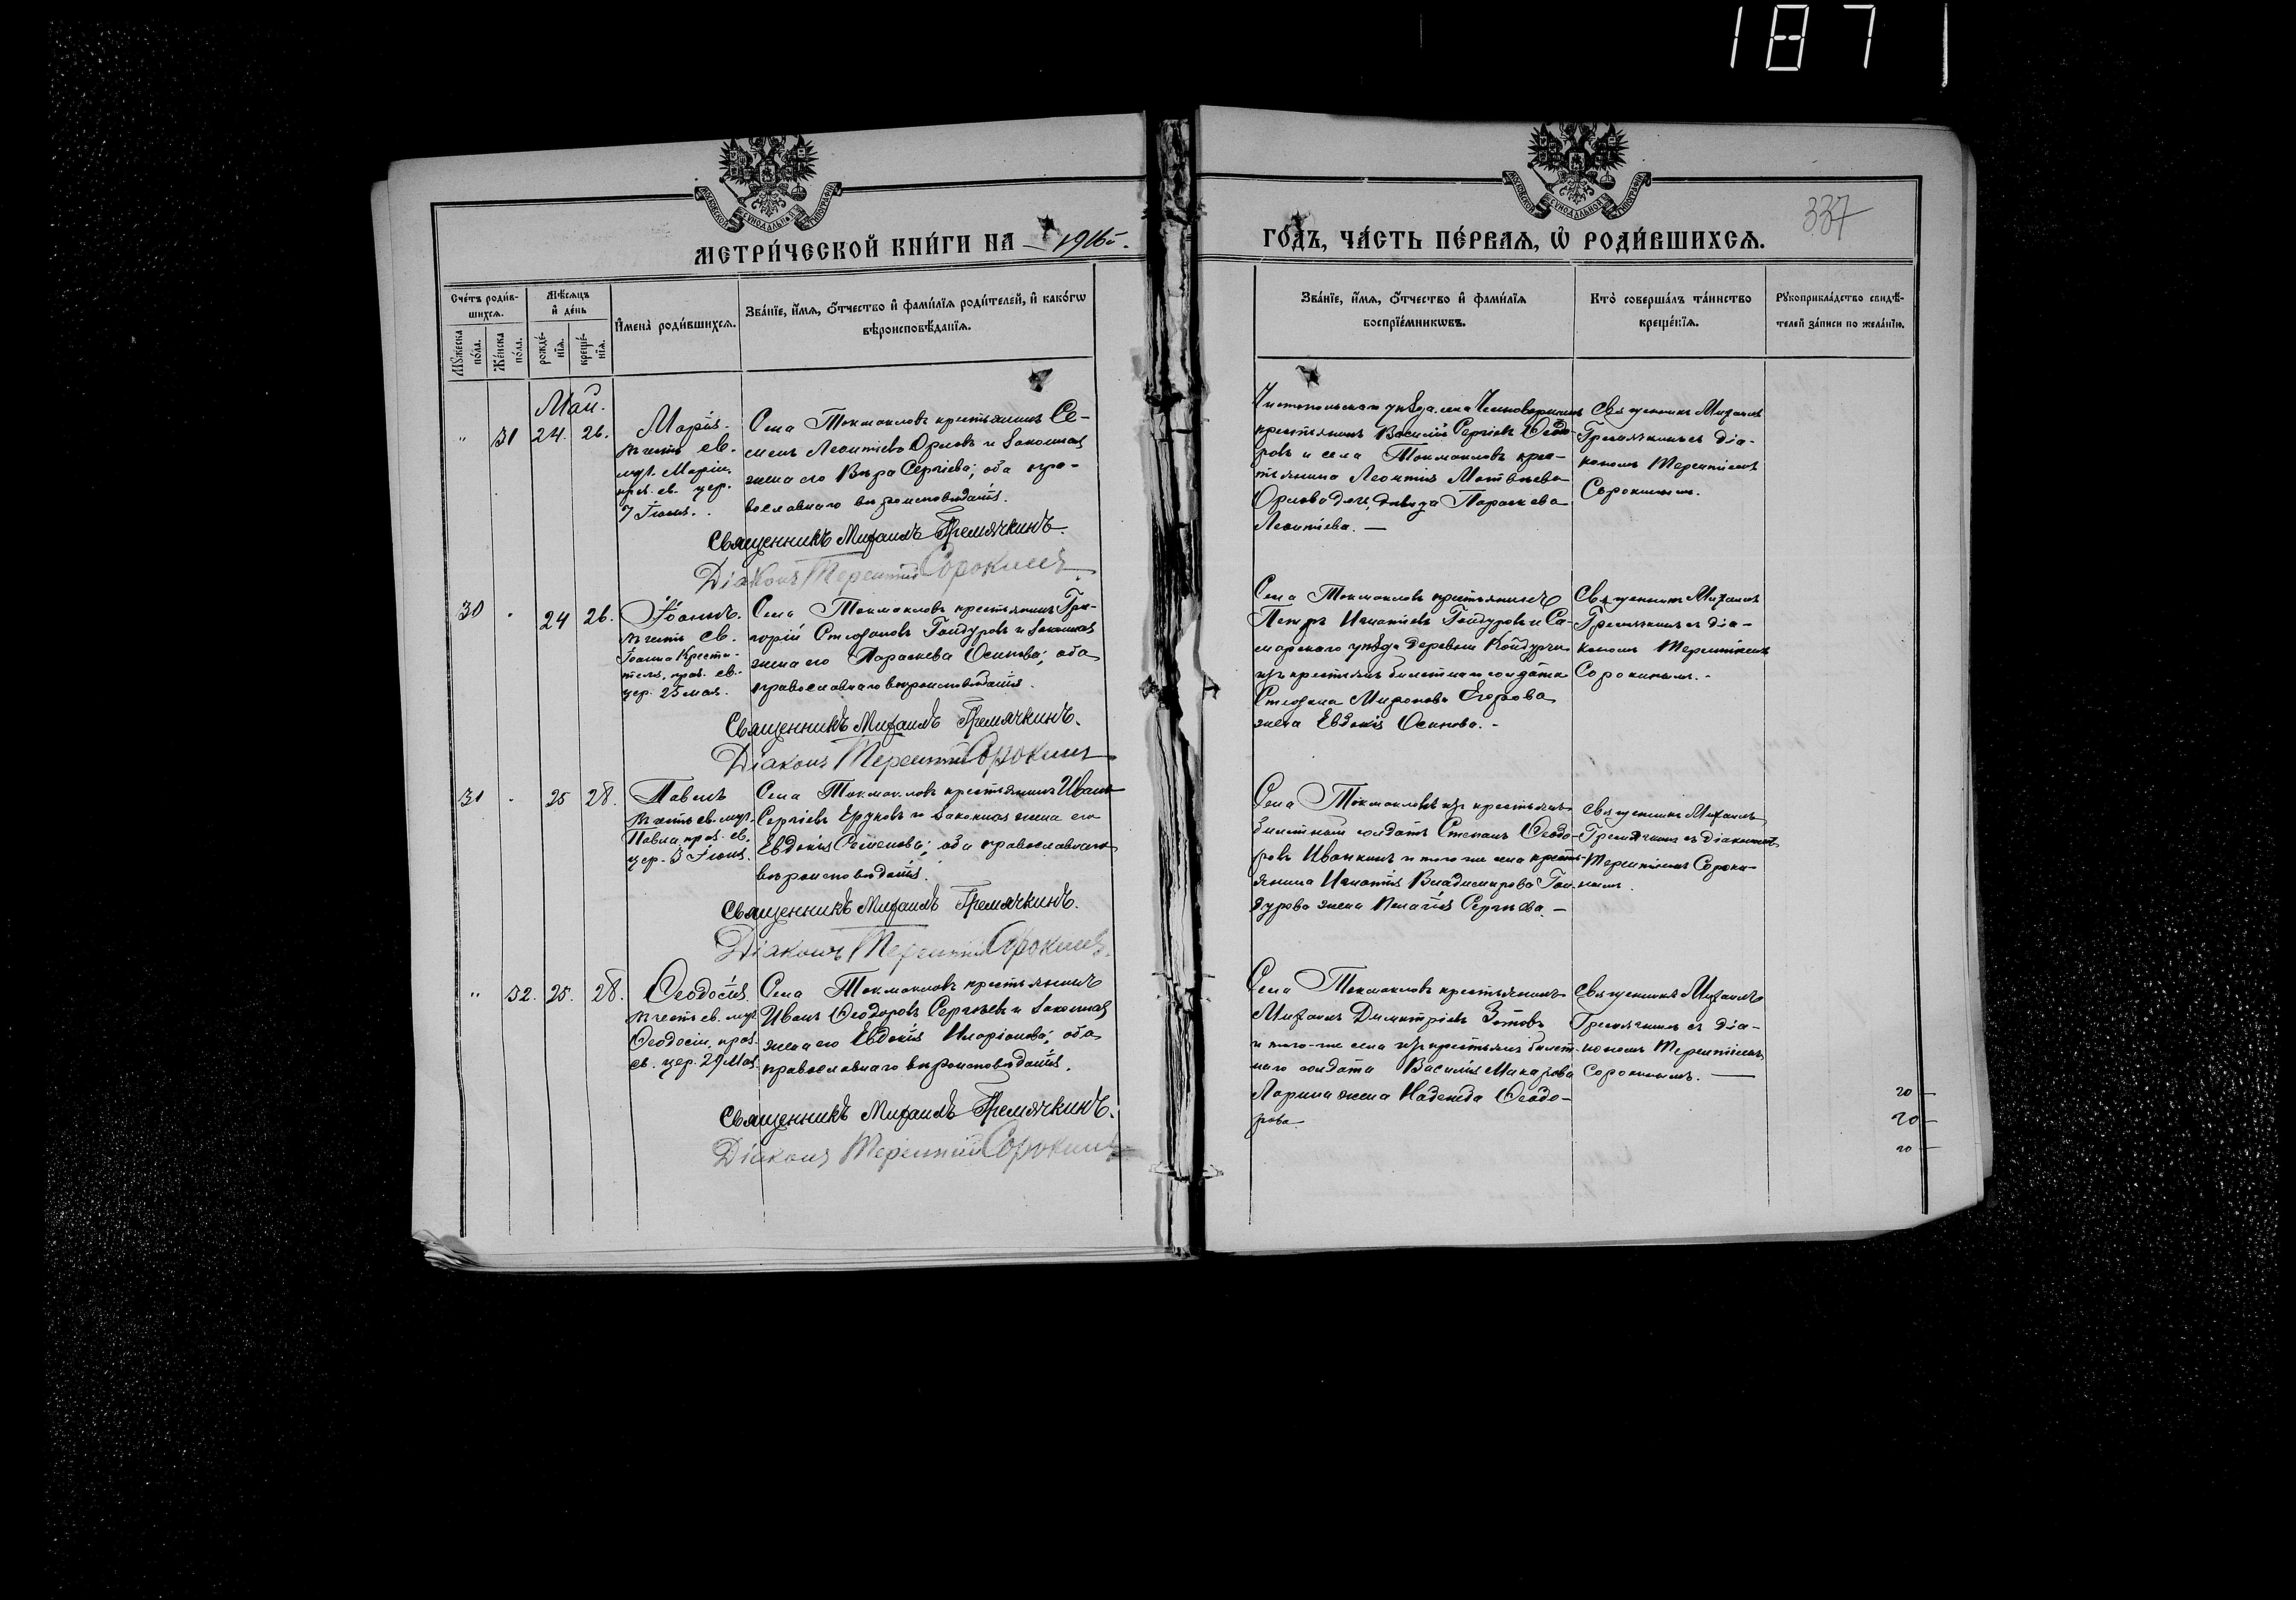 1871
МОСКОВСКОЙ СУНОДАЛЬНОЙ ТИПОГРАФІИ
МОСКОВСКОЙ СУНОДАЛЬНОЙ ТИПОГРАФІИ
337
МЕТРИ́ЧЕСКОЙ КНИ́ГИ НА 1916 г.
ГО́ДЪ, ЧА́СТЬ ПЕ́РВАѦ, Ѡ҆ РОДИ́ВШИХСѦ.
Сче́тъ роди́в-
шихсѧ.
Мѣ́сѧцъ
и҆ де́нь
Мꙋжеска по́ла.
Же́нска по́ла.
рожде́-
нїѧ.
креще́-
нїѧ.
И҆мена̀ роди́вшихсѧ.
Зва́нїе, и҆́мѧ, ѻ҆́тчество и҆ фами́лїѧ роди́телей, и҆ како́гѡ
вѣроисповѣ́данїѧ.
Зва́нїе, и҆́мѧ, ѻ҆́тчество и҆ фами́лїѧ
воспрїе́мникѡвъ.
Кто̀ соверша́лъ та́инство
креще́нїѧ.
Рꙋкоприкла́дство свидѣ́-
телей за́писи по жела́нїю.
Май.
" 31 24. 26.
Марія.
въ честь св.
муч. Маріи,
праз. св. цер.
7 Іюня.
Села Токмакловъ крестьянинъ Се-
менъ Леонтіевъ Орловъ и законная
жена его Вѣра Сергіева; оба пра-
вославнаго вѣроисповѣданія.
Священникъ Михаилъ Гремячкинъ.
Діаконъ Терентій Сорокинъ
Чистопольскаго уѣзда, села
крестьянинъ Василій Сергіевъ Ѳедо-
ровъ и села Токмакловъ крес-
тьянина Леонтія Матвѣева
Орлова дочь, дѣвица Параскева
Леонтіева. —
Священникъ Михаилъ
Гремячкинъ съ діа-
кономъ Терентіемъ
Сорокинымъ.
30 " 24 26.
Іоаннъ.
въ честь св.
Іоанна Крести-
теля, праз. св.
цер. 25 мая.
Села Токмакловъ крестьянинъ Гри-
горій Стефановъ Гайдуровъ и законная
жена его Параскева Осипова; оба
православнаго вѣроисповѣданія.
Священникъ Михаилъ Гремячкинъ.
Діаконъ Терентій Сорокинъ
Села Токмакловъ крестьянинъ
Петръ Игнатіевъ Гайдуровъ и Са-
марскаго уѣзда деревни
изъ крестьянъ билетнаго солдата
Стефана Миронова Егорова
жена Евдокія Осипова. -
Священникъ Михаилъ
Гремячкинъ съ діа-
кономъ Терентіемъ
Сорокинымъ. -
31 " 25 28.
Павелъ
въ честь св. муч.
Павла, праз. св.
цер. 3 Іюня.
Села Токмакловъ крестьянинъ Иванъ
Сергіевъ Еруковъ и законная жена его
Евдокія Семенова; оба православнаго
вѣроисповѣданія.
Священникъ Михаилъ Гремячкинъ.
Діаконъ Терентій Сорокинъ.
Села Токмакловъ изъ крестьянъ
билетный солдатъ Степанъ Ѳедо-
ровъ Иванкинъ и того же села кресть-
янина Игнатія Владимирова Гай-
дурова жена Пелагія Сергѣева. —
Священникъ Михаилъ
Гремячкинъ съ діакономъ
Терентіемъ Сороки-
нымъ.
" 32. 25. 28.
Ѳеодосія
въ честь св. муч.
Ѳеодосіи, праз.
св. цер. 29 Мая.
Села Токмакловъ крестьянинъ
Иванъ Ѳеодоровъ Сергѣевъ и законная
жена его Евдокія Иларіонова; оба
православнаго вѣроисповѣданія.
Священникъ Михаилъ Гремячкинъ.
Діаконъ Терентій Сорокинъ
Села Токмакловъ крестьянинъ
Михаилъ Димитріевъ Зотовъ
и того-же села изъ крестьянъ билет-
наго солдата Василія Макарова
Ларина жена Надежда Ѳеодо-
рова.
Священникъ Михаилъ
Гремячкинъ съ діа-
кономъ Терентіемъ
Сорокинымъ. —
20
20
20